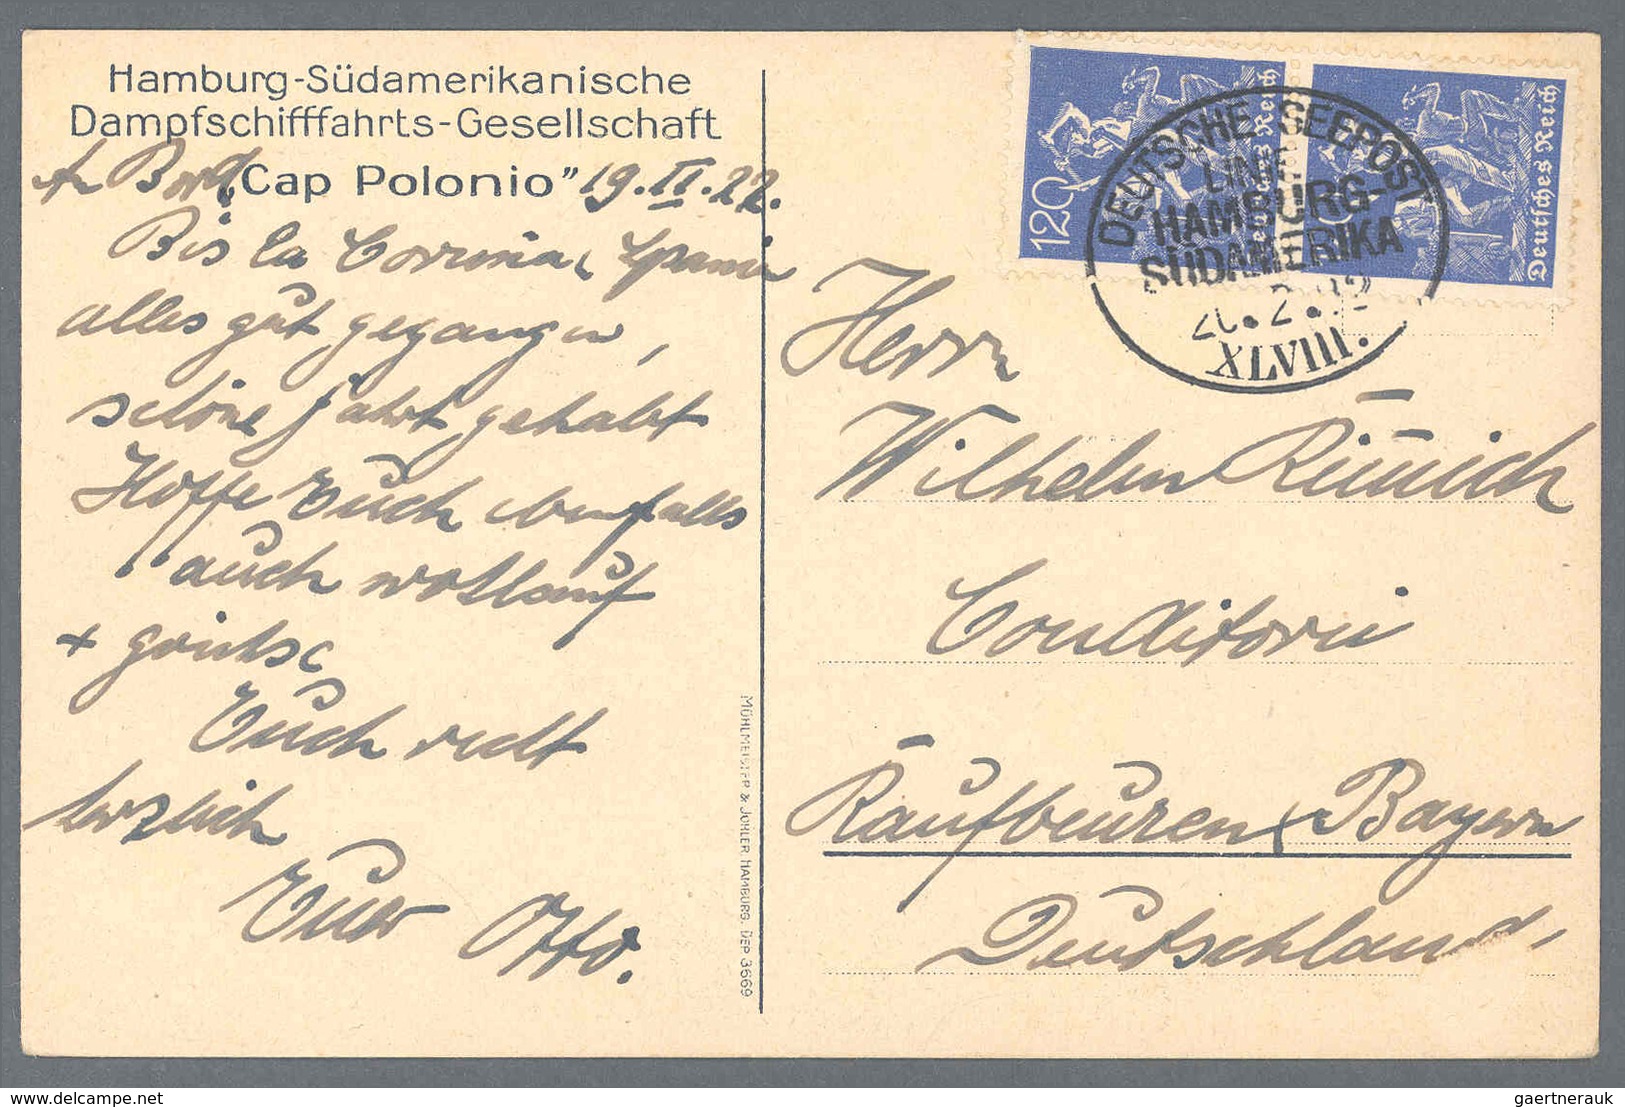 Hamburg-Südamerikanische
Dampfschifffahrts-Gesellschaft
An Bord „Cap Polonio” 19.II.22.
Bis la Coruña, Spanien
alles gut gegangen,
schöne Fahrt gehabt
Hoffe Euch ebenfalls
auch wollauf
+ grüsse
Euch recht
herzlich
Euer Otto.
MÜHLMEISTER & JOHLER HAMBURG. DEP 3669
120
Deutsches Reich
Deutsches Reich
DEUTSCHE SEEPOST
LINIE
HAMBURG-
SÜDAMERIKA
20.2.22
XLVIII.
Herrn
Wilhelm
Conditorei
Kaufbeuren, Bayern
Deutschland,
delcampe.net
gaertnerauk